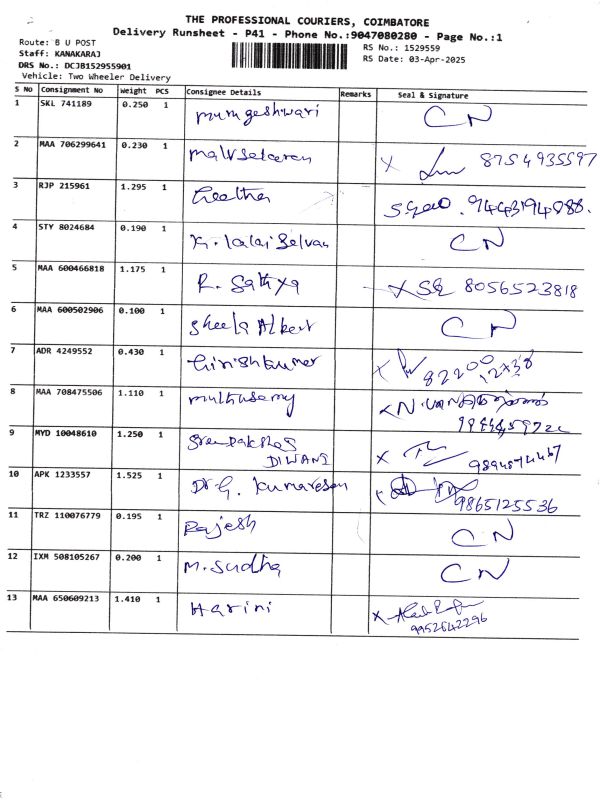 THE PROFESSIONAL COURIERS, COIMBATORE
Delivery Runsheet - P41 - Phone No.:9047080280 - Page No.:1
Route: B U POST
Staff: KANAKARAJ
DRS No.: DCJB152955901
Vehicle: Two Wheeler Delivery
RS No.: 1529559
RS Date: 03-Apr-2025
S No Consignment No Weight PCS Consignee Details Remarks Seal & Signature
1 SKL 741189 0.250 1 murugeshwari CN
2 MAA 706299641 0.230 1 8754935597
3 RJP 215961 1.295 1 Geetha 9443194888.
4 STY 8024684 0.190 1 K. Kalai Selvan CN
5 MAA 600466818 1.175 1 R. Sathya X 8056523818
6 MAA 600502906 0.100 1 Sheela Albert CN
7 ADR 4249552 0.430 1 Girishkumar X 82200
8 MAA 708475506 1.110 1 muthusamy
9 MYD 10048610 1.250 1 DIWANS X
10 APK 1233557 1.525 1 Dr G. Kumaresan 9865125536
11 TRZ 110076779 0.195 1 Rajesh CN
12 IXM 508105267 0.200 1 M. Sudha CN
13 MAA 650609213 1.410 1 Harini X
9952642296